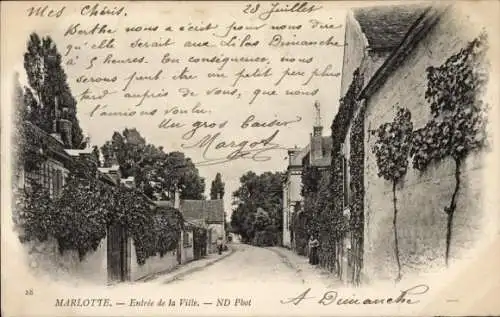 Mes Chéris,
28 Juillet
Berthe nous a écrit pour nous dire
qu'elle serait aux Lilas Dimanche
à 5 heures. En conséquence, nous
serons chez vous un petit peu plus
tard auprès de vous, que nous
l'aurions voulu.
Un gros baiser
Margot
à Dimanche
28
MARLOTTE. — Entrée de la Ville. — ND Phot